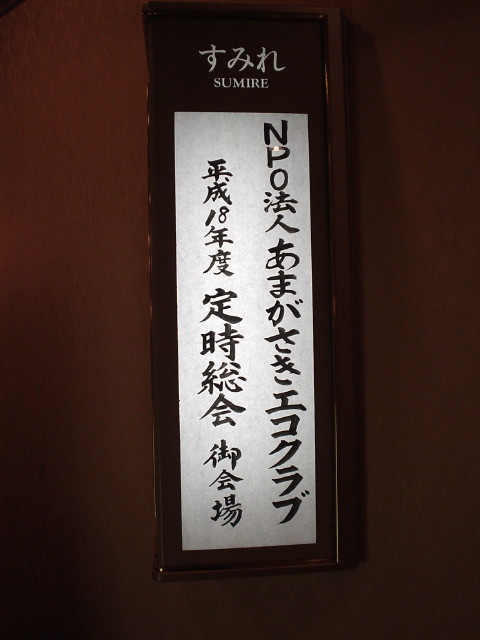 すみれ
SUMIRE
NPO法人あまがさきエコクラブ
平成18年度 定時総会 御会場